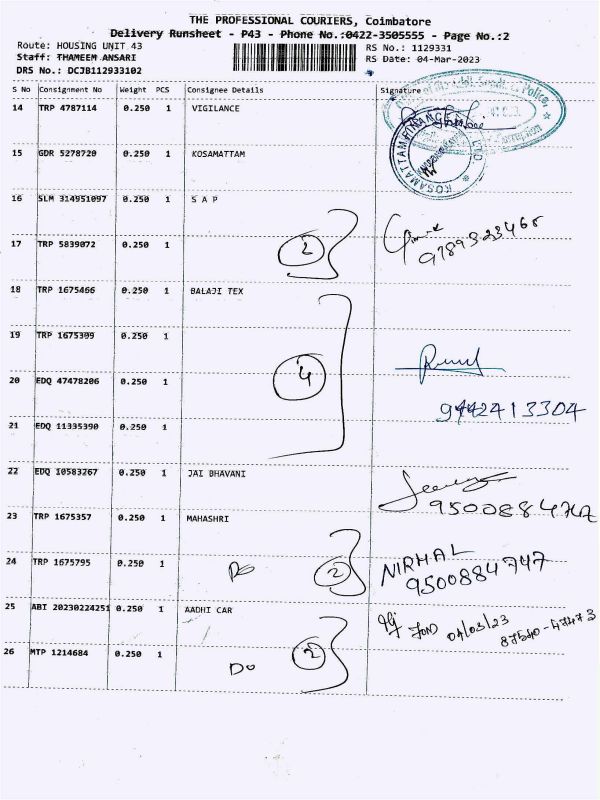 THE PROFESSIONAL COURIERS, Coimbatore
Delivery Runsheet - P43 - Phone No.:0422-3505555 - Page No.:2
Route: HOUSING UNIT 43
RS No.: 1129331
Staff: THAMEEM ANSARI
RS Date: 04-Mar-2023
DRS No.: DCJB112933102
S No Consignment No Weight PCS Consignee Details Signature
14 TRP 4787114 0.250 1 VIGILANCE
15 GDR 5278720 0.250 1 KOSAMATTAM
KOSAMATTAM FINANCE LTD.
16 SLM 314951097 0.250 1 S A P
17 TRP 5839072 0.250 1 2 9789323468
18 TRP 1675466 0.250 1 BALAJI TEX
19 TRP 1675309 0.250 1
20 EDQ 47478206 0.250 1 4
9442413304
21 EDQ 11335390 0.250 1
22 EDQ 10583267 0.250 1 JAI BHAVANI
9500884747
23 TRP 1675357 0.250 1 MAHASHRI
24 TRP 1675795 0.250 1 Do 2 NIRMAL
9500884747
25 ABI 20230224251 0.250 1 AADHI CAR
04/03/23
87540-47473
26 MTP 1214684 0.250 1 Do 2